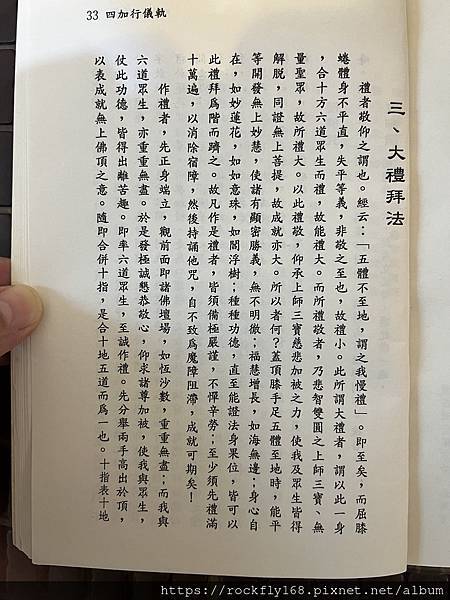 33 四加行儀軌
三、大禮拜法
禮者敬仰之謂也。經云：「五體不至地，謂之我慢禮」。即至矣，而屈膝
蜷體身不平直，失平等義，非敬之至也，故禮小。此所謂大禮者，謂以此一身
，合十方六道眾生而禮，故能禮大。而所禮敬者，乃悲智雙圓之上師三寶、無
量聖眾，故所禮大。以此禮敬，仰承上師三寶慈悲加被之力，使我及眾生皆得
解脫，同證無上菩提，故成就亦大。所以者何？蓋頂膝手足五體至地時，能平
等開發無上妙慧，使諸有顯密勝義，無不明徹；福慧增長，如海無邊；身心自
在，如妙蓮花，如如意珠，如閻浮樹；種種功德，直至能證法身果位，皆可以
此禮拜為階而躋之。故凡作是禮者，皆須備極嚴謹，不憚辛勞；至少須先禮滿
十萬遍，以消除宿障，然後持誦他咒，自不致為魔障阻滯，成就可期矣！
作禮者，先正身端立，觀前面即諸佛壇場，如恆沙數，重重無盡；而我與
六道眾生，亦重重無盡。於是發極誠懇恭敬心，仰求諸尊加被，使我與眾生，
仗此功德，皆得出離苦趣。即率六道眾生，至誠作禮。先分舉兩手高出於頂，
以表成就無上佛頂之意。隨即合併十指，是合十地五道而為一也。十指表十地
https://rockfly168.pixnet.net/album